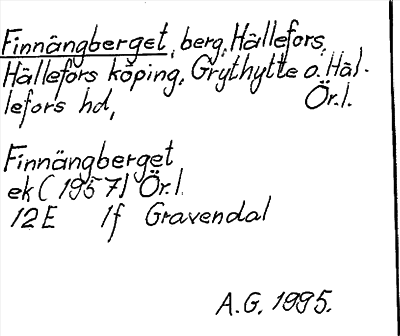 Finnängberget, berg, Hällefors,
Hällefors köping, Grythytte o. Häl-
lefors hd, Ör.l.
Finnängberget
ek (1957) Ör.l.
12E 1f Gravendal
A.G. 1995.